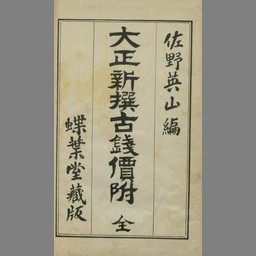 佐野英山編
大正新撰古錢價附 全
蝶葉堂藏版